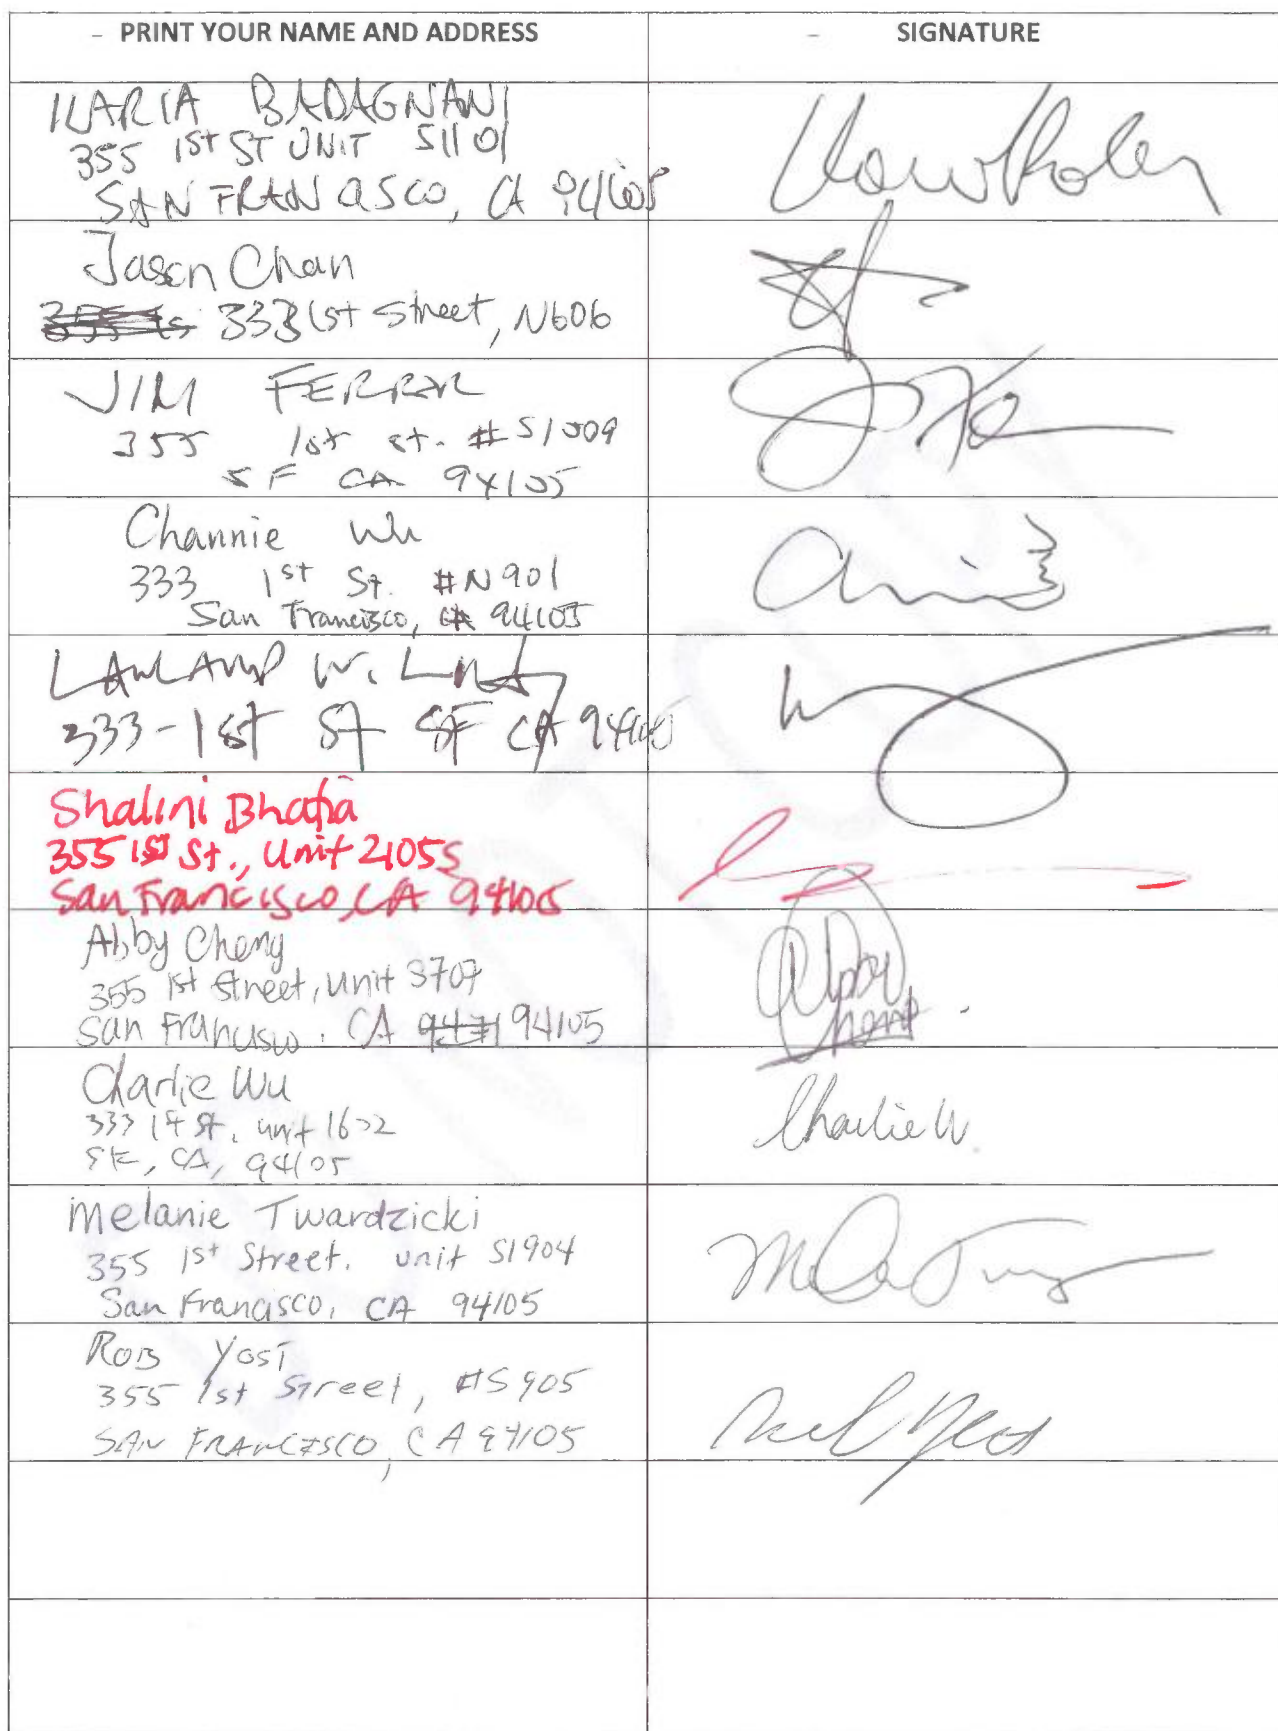 - PRINT YOUR NAME AND ADDRESS
- SIGNATURE
ILARIA BADAGNANI
355 1ST ST UNIT S1101
SAN FRANCISCO, CA 94105
Jason Chan
333 1st Street, N606
JIM FERRAR
355 1st st. # S1009
SF CA 94105
Channie Wu
333 1st St. #N901
San Francisco, CA 94105
W.
333-1st St SF CA 94105
Shalini Bhatia
355 1st St., Unit 2105S
San Francisco, CA 94105
Abby Cheng
355 1st Street, Unit 3707
San Francisco, CA 94105
Abby Cheng
Charlie Wu
333 1st St, unit 1602
SF, CA, 94105
Charlie W.
Melanie Twardzicki
355 1st Street, unit S1904
San Francisco, CA 94105
ROB YOST
355 1st Street, #S905
SAN FRANCISCO, CA 94105